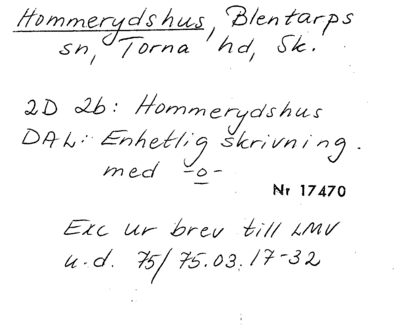 Hommerydshus, Blentarps
sn, Torna hd, Sk.
2D 2b: Hommerydshus
DAL: Enhetlig skrivning.
med -o-
Nr 17470
Exc ur brev till LMV
u.d. 75/75.03.17-32